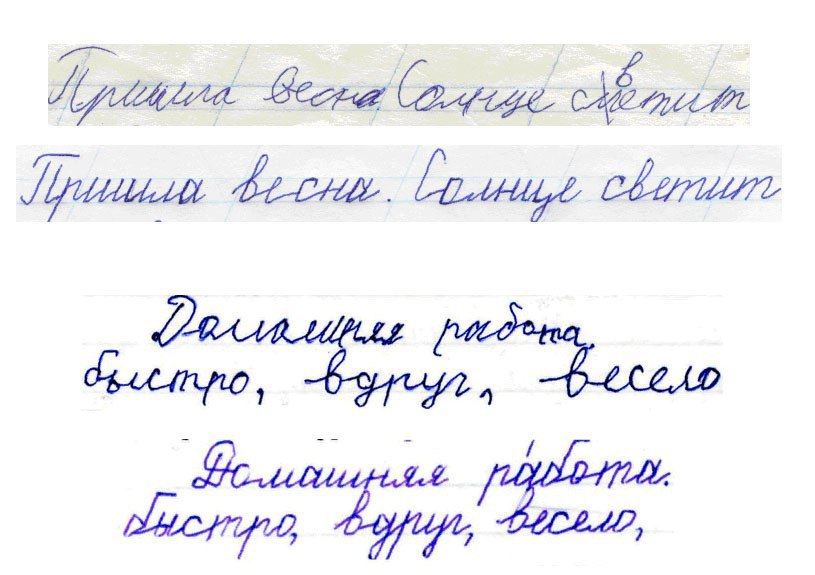 Пришла весна. Солнце светит
Пришла весна. Солнце светит
Домашняя работа.
быстро, вдруг, весело
Домашняя работа.
быстро, вдруг, весело,